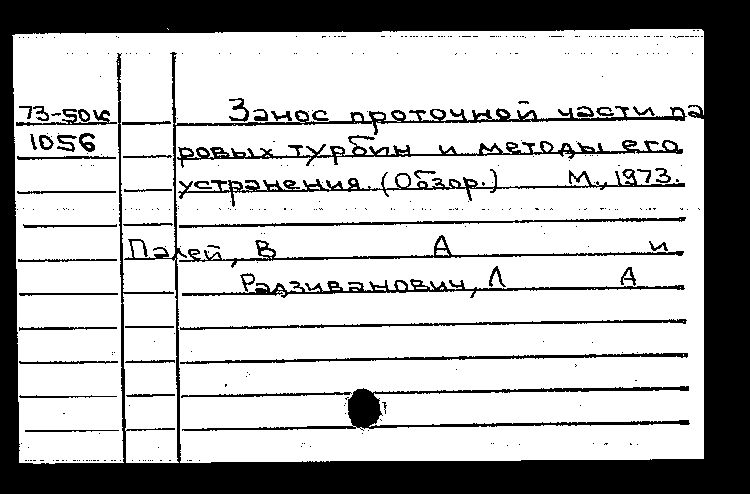 73-50к Занос проточной части па
1056 ровых турбин и методы его
устранения. (Обзор.) М., 1973.
Палей, В А и
Радзиванович, Л А